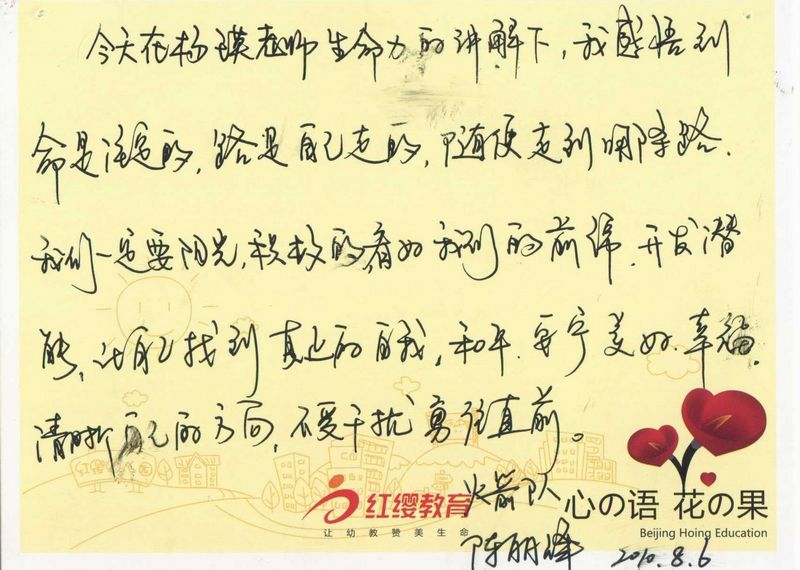 今天在杨瑛老师生命力的讲解下,我感悟到
命是注定的,路是自己走的,随便走到哪阵路.
我们一定要阳光,积极的看如我们的前绵.开发潜
能,让自己找到真正的自我,和平.安宁美好.幸福.
清晰自己的方向,不受干扰勇往直前。
火箭队
陈丽峰 2010.8.6
红缨教育
让幼教赞美生命
心の语 花の果
Beijing Hoing Education